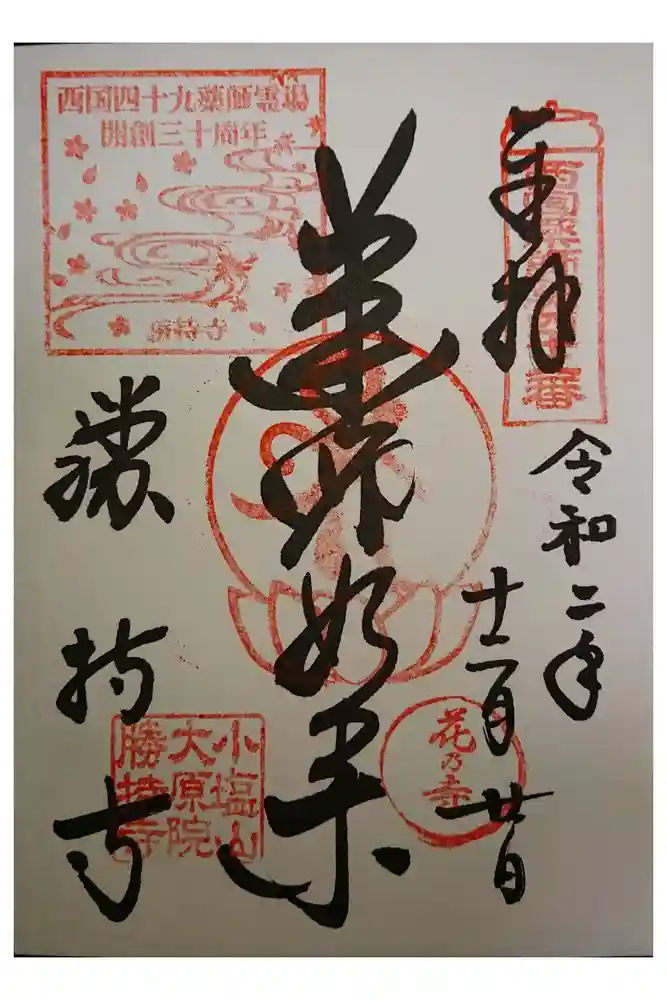 奉拝
西国薬師第四十二番
令和二年
十二月廿日
薬師如来
花乃寺
西国四十九薬師霊場
開創三十周年
勝持寺
勝持寺
小塩山
大原院
勝持寺